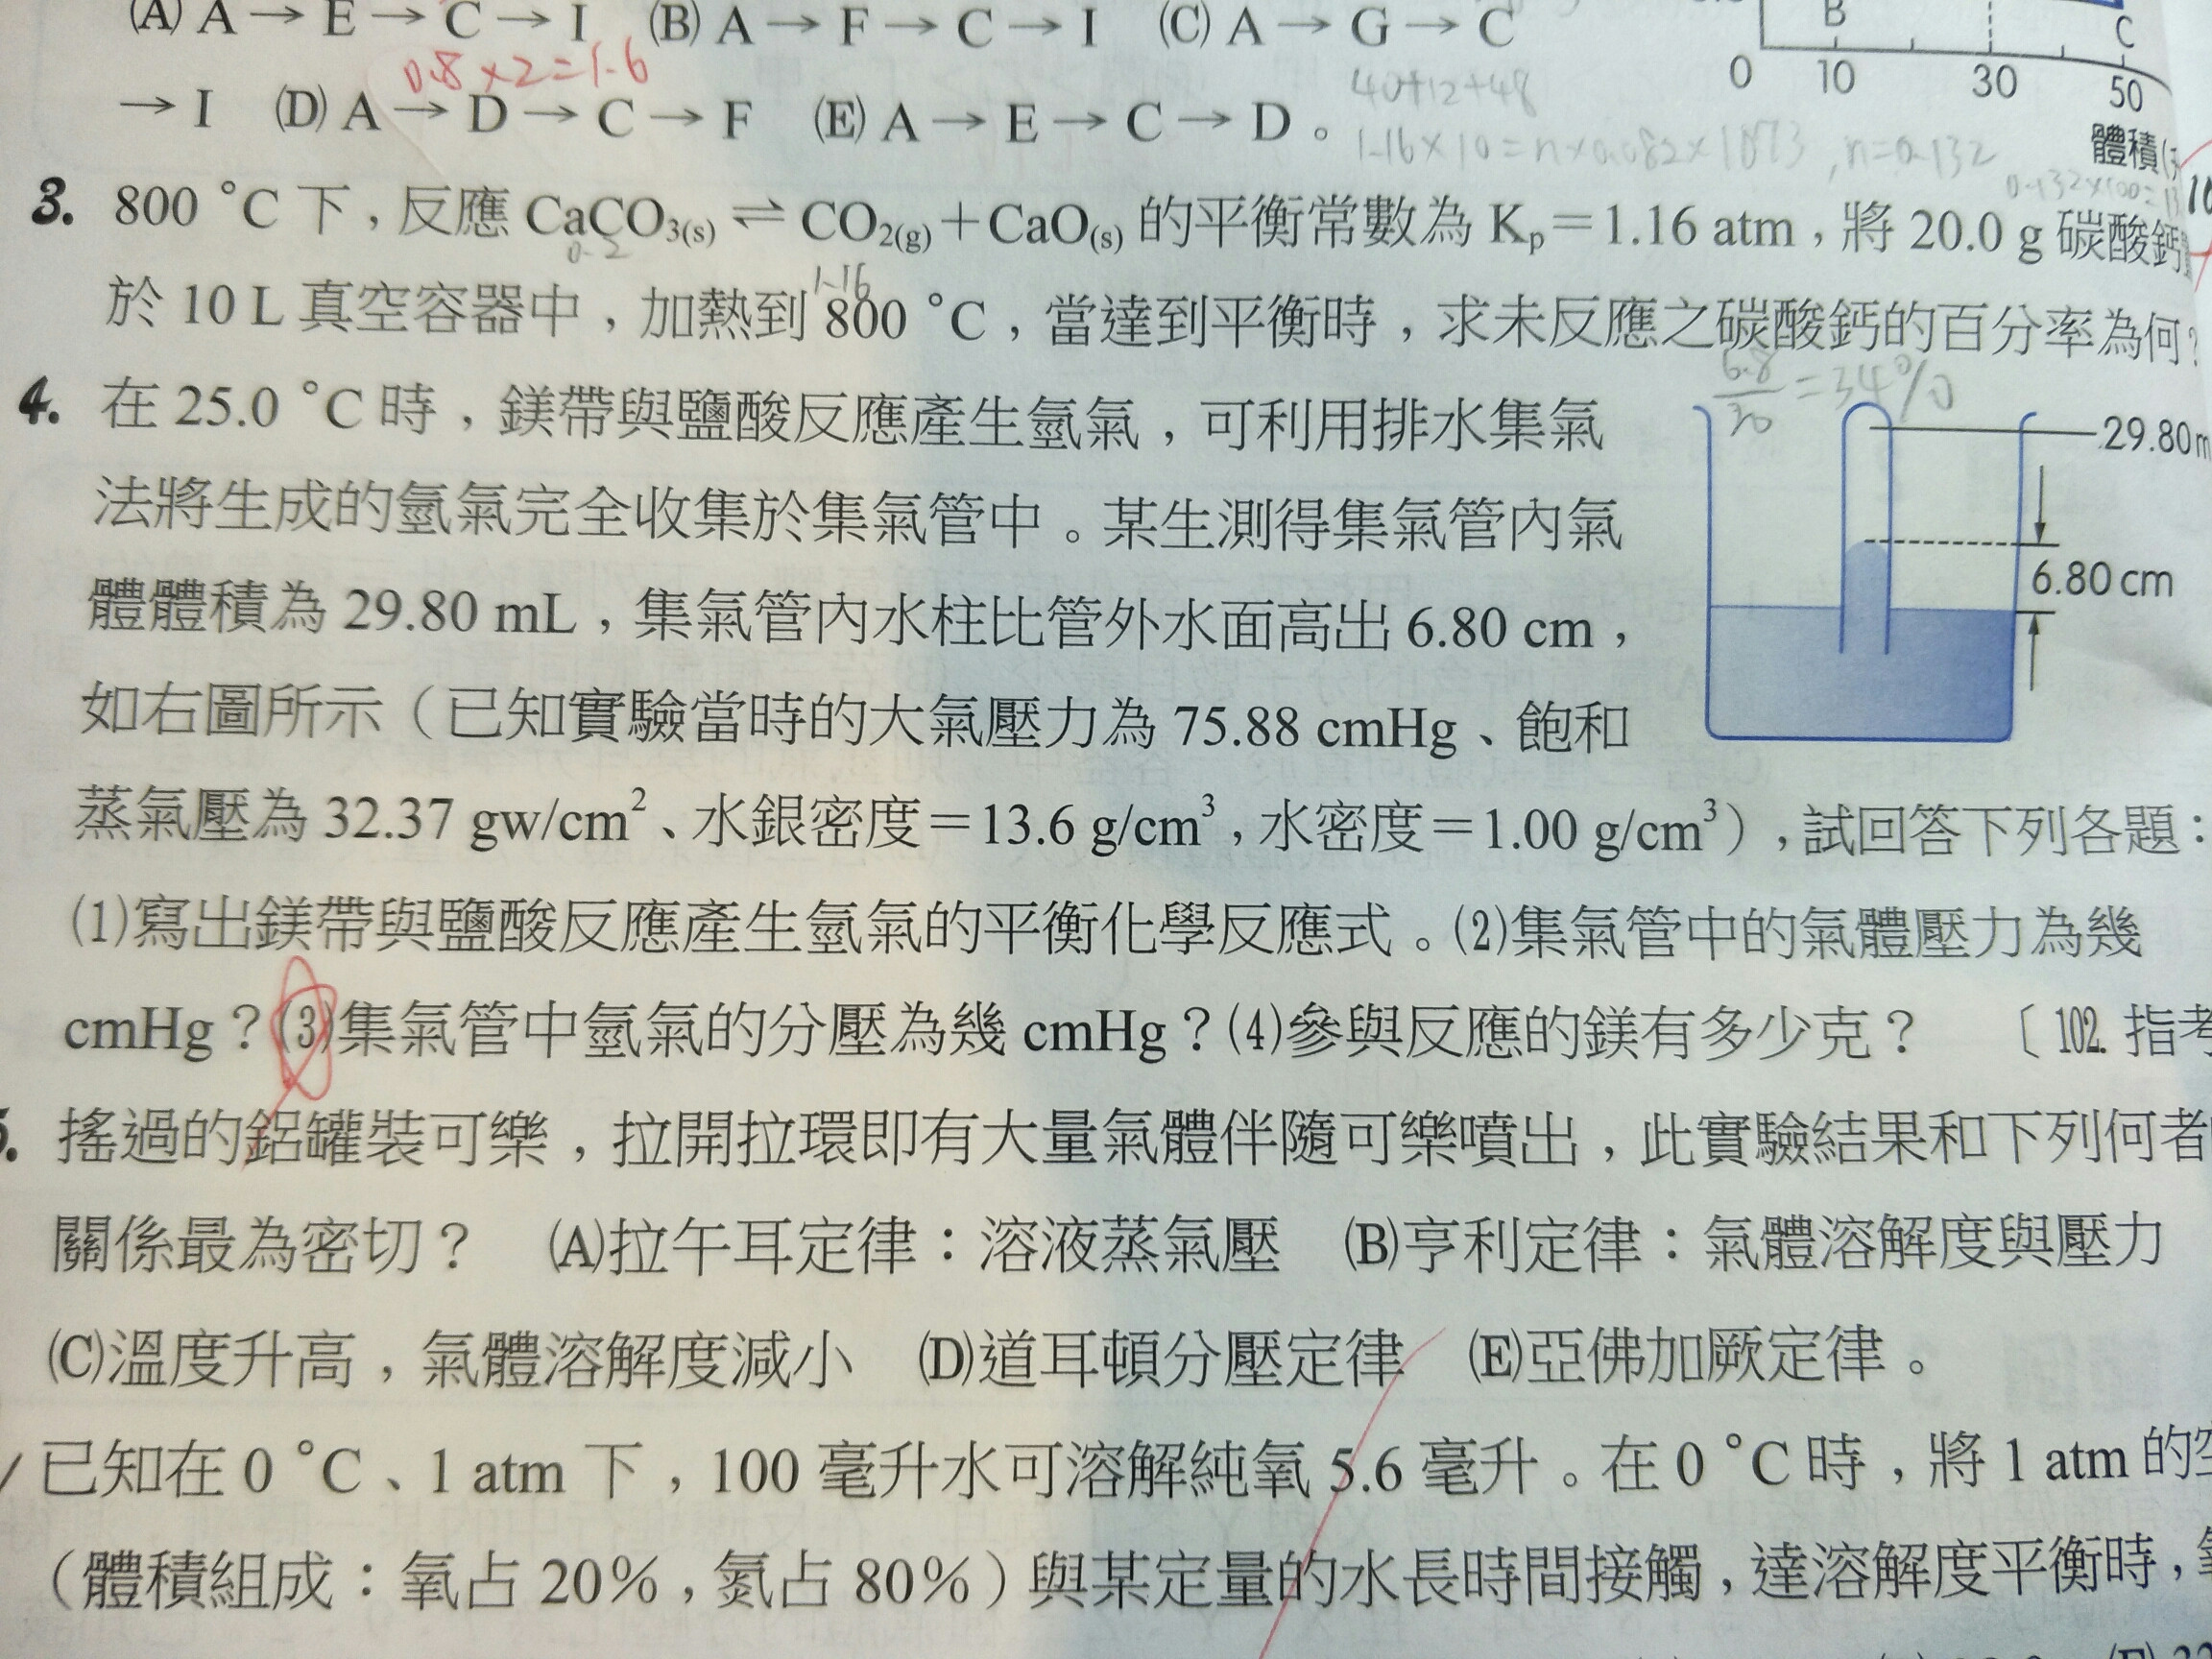 (A) A → E → C → I (B) A → F → C → I (C) A → G → C
→ I (D) A → D → C → F (E) A → E → C → D。
0.8×2=1.6
40+12+48
1.16×10=n×0.082×1073, n=0.132
B
C
0 10 30 50
體積
3. 800 °C 下，反應 CaCO3(s) ⇌ CO2(g)＋CaO(s) 的平衡常數為 Kp＝1.16 atm，將 20.0 g 碳酸鈣
0.2
1.16
於 10 L 真空容器中，加熱到 800 °C，當達到平衡時，求未反應之碳酸鈣的百分率為何？
6.8/20=34%
4. 在 25.0 °C 時，鎂帶與鹽酸反應產生氫氣，可利用排水集氣
法將生成的氫氣完全收集於集氣管中。某生測得集氣管內氣
體體積為 29.80 mL，集氣管內水柱比管外水面高出 6.80 cm，
如右圖所示（已知實驗當時的大氣壓力為 75.88 cmHg、飽和
蒸氣壓為 32.37 gw/cm²、水銀密度＝13.6 g/cm³，水密度＝1.00 g/cm³），試回答下列各題：
29.80m
6.80 cm
(1)寫出鎂帶與鹽酸反應產生氫氣的平衡化學反應式。(2)集氣管中的氣體壓力為幾
cmHg？(3)集氣管中氫氣的分壓為幾 cmHg？(4)參與反應的鎂有多少克？ 〔102. 指考
5. 搖過的鋁罐裝可樂，拉開拉環即有大量氣體伴隨可樂噴出，此實驗結果和下列何者
關係最為密切？ (A)拉午耳定律：溶液蒸氣壓 (B)亨利定律：氣體溶解度與壓力
(C)溫度升高，氣體溶解度減小 (D)道耳頓分壓定律 (E)亞佛加厥定律。
已知在 0 °C、1 atm 下，100 毫升水可溶解純氧 5.6 毫升。在 0 °C 時，將 1 atm 的空
（體積組成：氧占 20%，氮占 80%）與某定量的水長時間接觸，達溶解度平衡時，氧